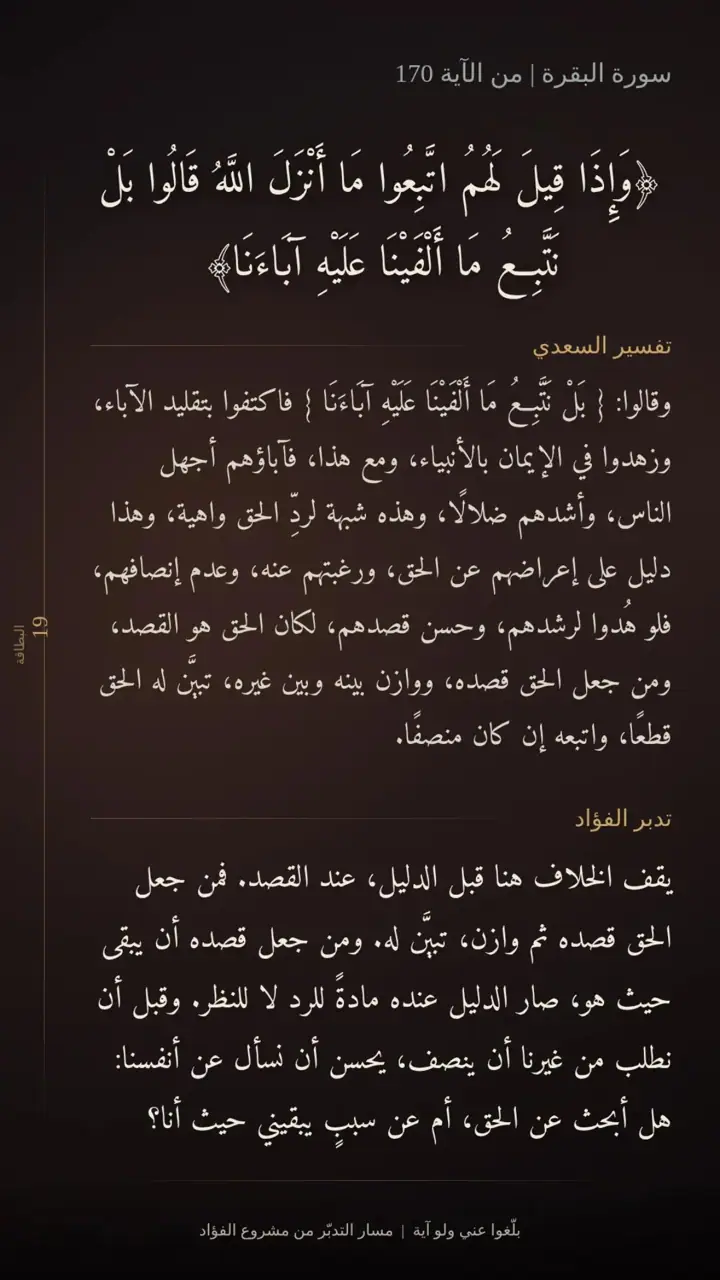 سورة البقرة | من الآية 170
﴿وَإِذَا قِيلَ لَهُمُ اتَّبِعُوا مَا أَنْزَلَ اللَّهُ قَالُوا بَلْ
نَتَّبِعُ مَا أَلْفَيْنَا عَلَيْهِ آبَاءَنَا﴾
تفسير السعدي
وقالوا: { بَلْ نَتَّبِعُ مَا أَلْفَيْنَا عَلَيْهِ آبَاءَنَا } فاكتفوا بتقليد الآباء،
وزهدوا في الإيمان بالأنبياء، ومع هذا، فآباؤهم أجهل
الناس، وأشدهم ضلالًا، وهذه شبهة لردِّ الحق واهية، وهذا
دليل على إعراضهم عن الحق، ورغبتهم عنه، وعدم إنصافهم،
فلو هُدوا لرشدهم، وحسن قصدهم، لكان الحق هو القصد،
ومن جعل الحق قصده، ووازن بينه وبين غيره، تبيَّن له الحق
قطعًا، واتبعه إن كان منصفًا.
البطاقة
19
تدبر الفؤاد
يقف الخلاف هنا قبل الدليل، عند القصد. فمن جعل
الحق قصده ثم وازن، تبيَّن له. ومن جعل قصده أن يبقى
حيث هو، صار الدليل عنده مادةً للرد لا للنظر. وقبل أن
نطلب من غيرنا أن ينصف، يحسن أن نسأل عن أنفسنا:
هل أبحث عن الحق، أم عن سببٍ يبقيني حيث أنا؟
بلّغوا عني ولو آية | مسار التدبّر من مشروع الفؤاد